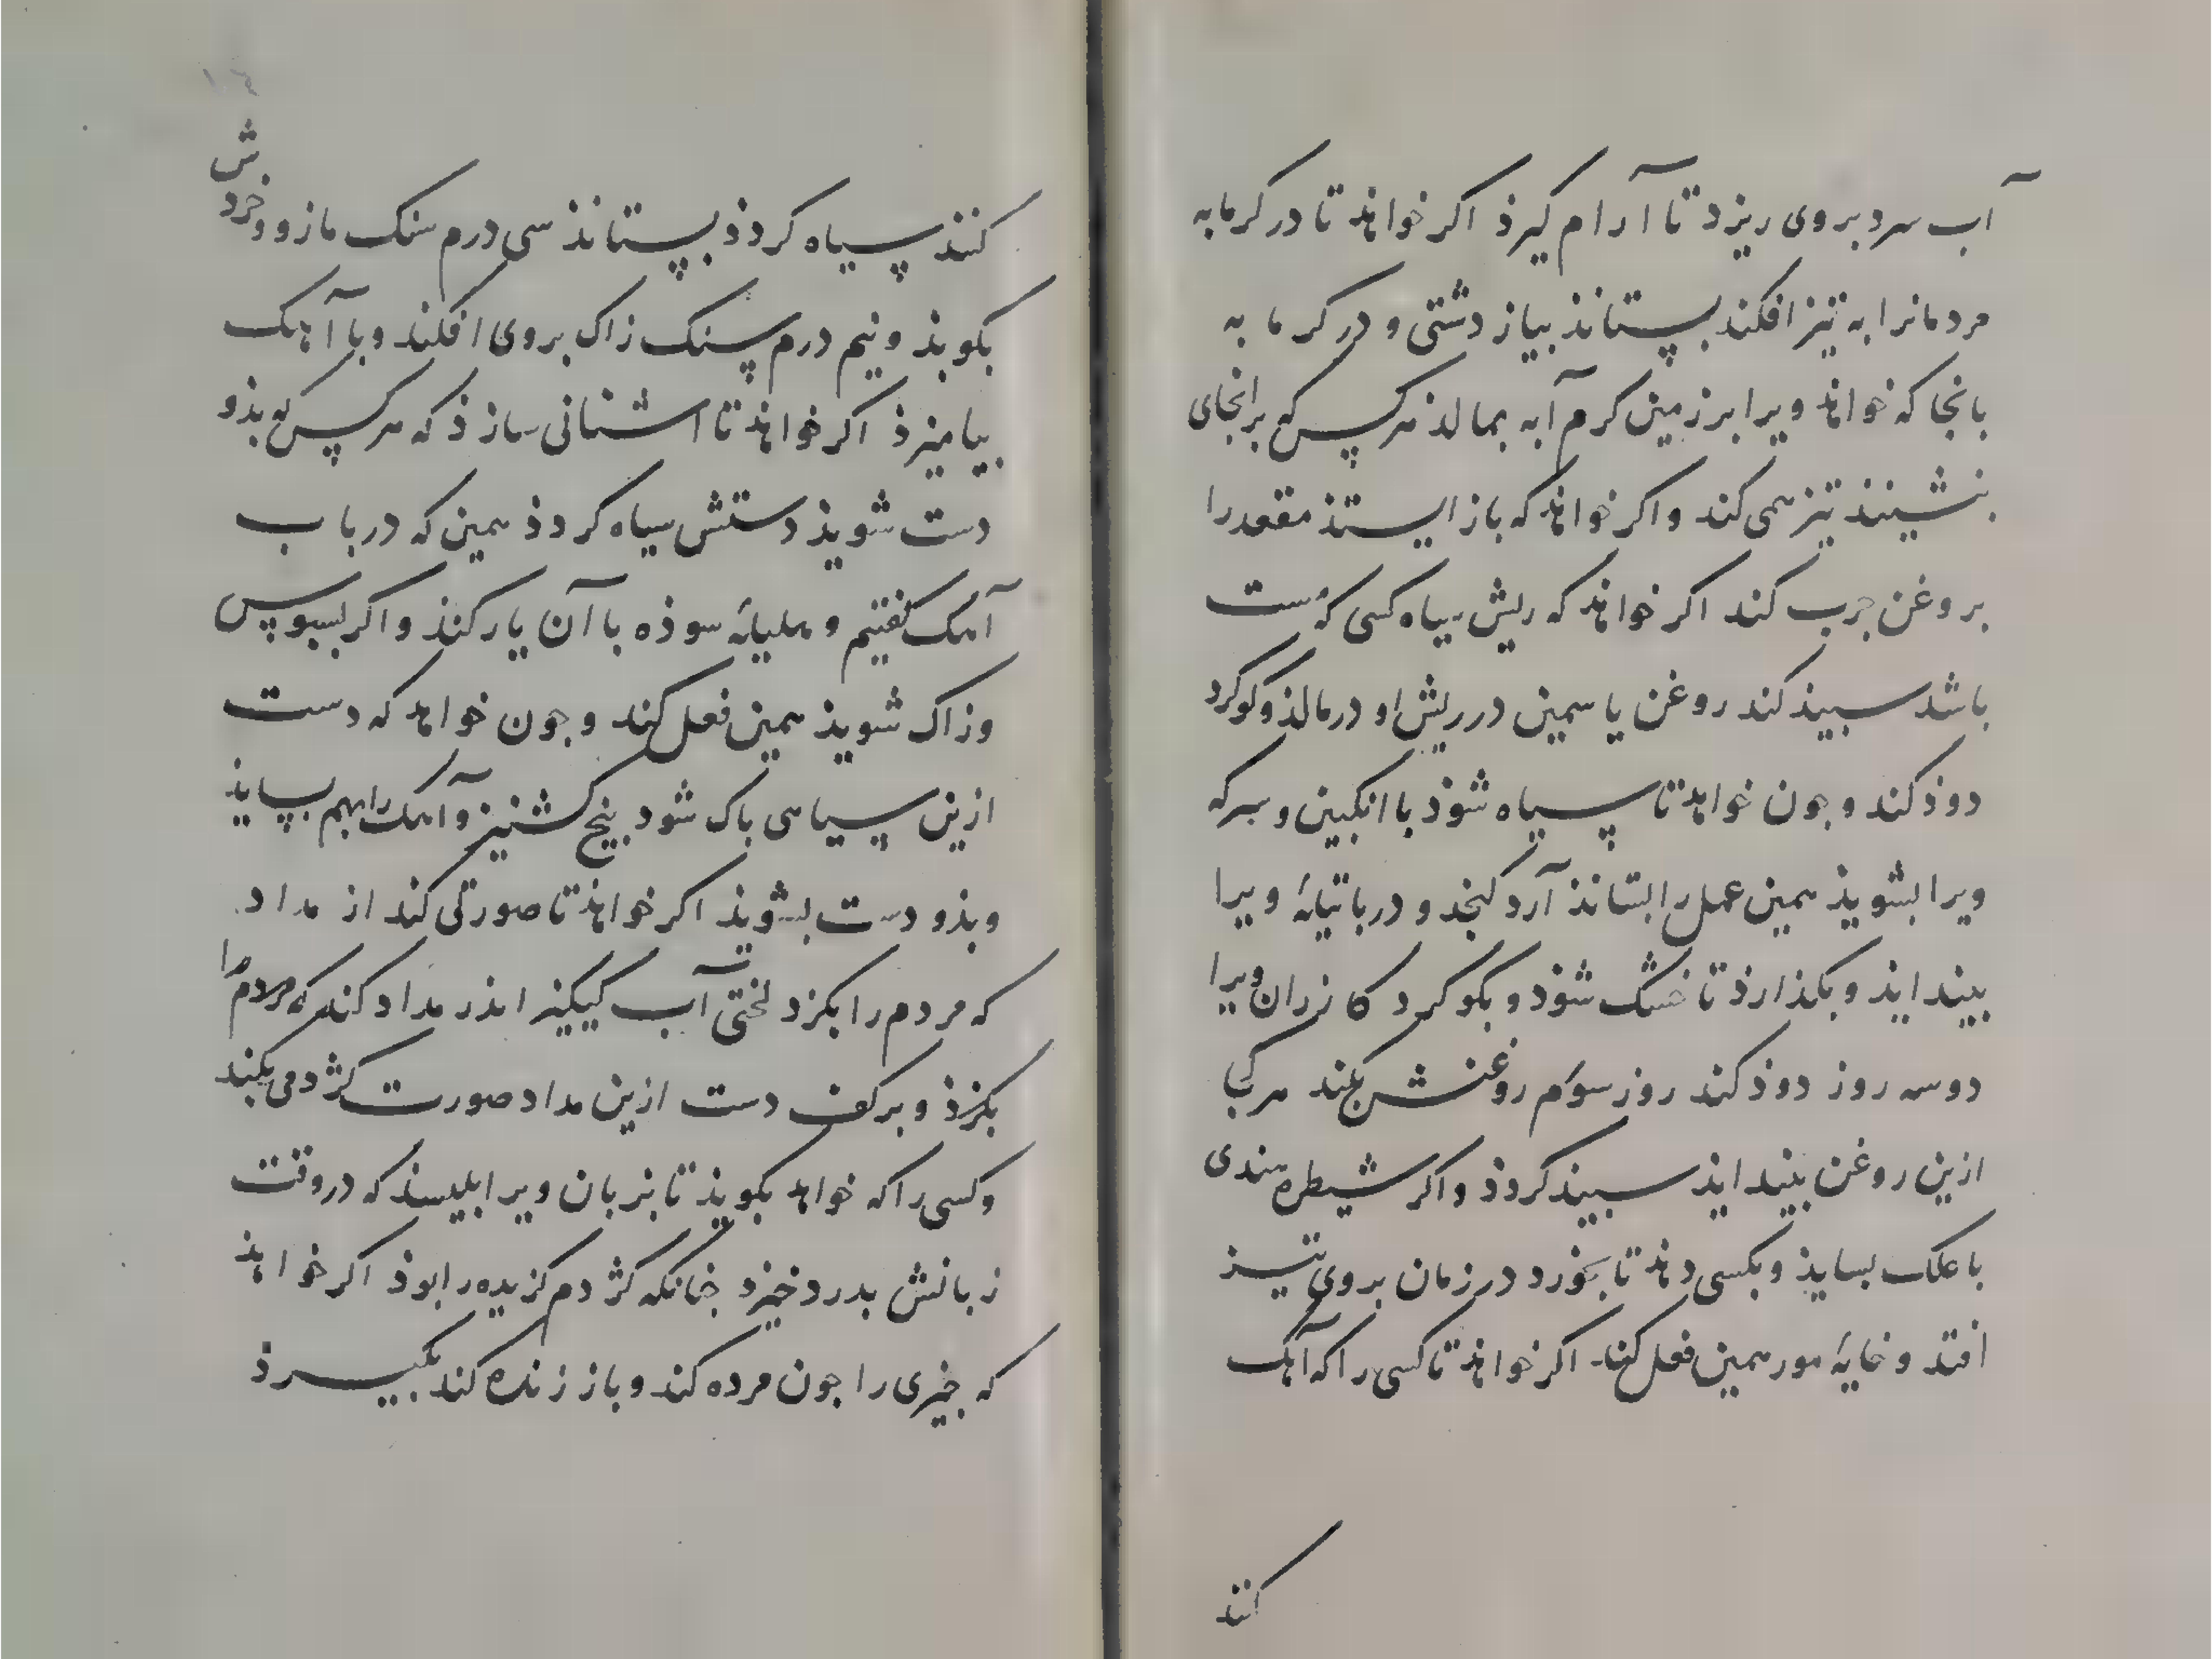 آب سرد بروی ریزد تا آرام کیرذ اکر خواهذ تا در کرمابه
مردمانرا به تیز افکند بستانذ بیاز دشتی و در کرما به
بانجا که خواهذ ویرا بر زمین کرم آبه بمالذ هر کس که بر انجای
بنشیند تیز همی کند و اکر خواهذ که باز ایستذ مقعد را
بروغن جرب کند اکر خواهذ که ریش سیاه کسی که هست
باشد سبیذ کند روغن یاسمین در ریش او در مالذ و کوکرد
دوذ کند و جون خواهذ تا سیاه شوذ با انکبین و سرکه
ویرا بشویذ همین عمل را بستانذ آرد کنجد و درباتیاٴه ویرا
بینداید و بکذارذ تا خشک شوذ و بکوکرد کازران ویرا
دو سه روز دوذ کند روز سوم روغنش بکند هر کی
ازین روغن بینداید سبیذ کردذ و اکر شیطره هندی
با علک بسایذ و بکسی دهذ تا بخورد در زمان بروی تیز
افتد و خایهٔ مور همین فعل کند اکر خواهذ تا کسی را که آهک
کنند
کنند سیاه کردذ بستانذ سی درم سنک مازو و خردش
بکوبذ و نیم درم سنک زاک بروی افکند و با آهک
بیامیزذ اکر خواهذ تا اشنانی سازذ که هر کس که بذو
دست شویذ دستش سیاه کردذ همین که در باب
آهک کفتیم و هلیلهٔ سوذه با آن یار کنذ و اکر بسبوس
و زاک شویذ همین فعل کند و جون خواهذ که دست
ازین سیاهی باک شود بیخ کشنیز و آهک را بهم بسایذ
و بذو دست بشویذ اکر خواهذ تا صورتی کند از مداد
که مردم را بکزد لختی آب کبیکیز اندر مداد کند که مردم را
بکزذ و بر کف دست ازین مداد صورت کژدمی بکند
و کسی را که خواهذ بکویذ تا بزبان ویرا بلیسذ که در وقت
زبانش بدرد خیزد جنانکه کژدم کزیده را بوذ اکر خواهذ
که جیزی را جون مرده کند و باز زنده کند بکیرذ